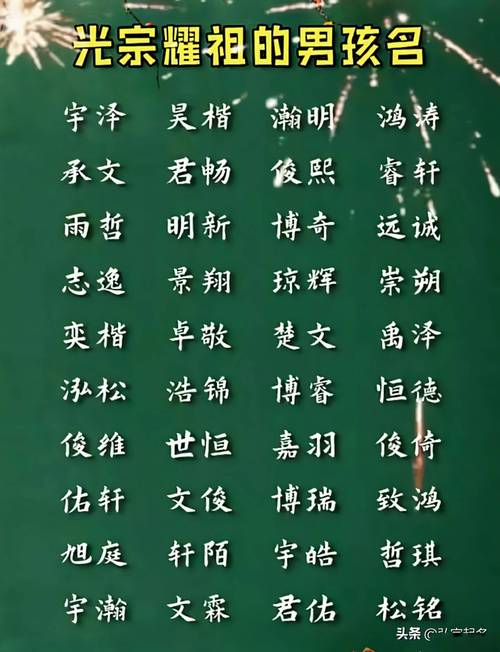 光宗耀祖的男孩名
宇泽 昊楷 瀚明 鸿涛
承文 君畅 俊熙 睿轩
雨哲 明新 博奇 远诚
志逸 景翔 琼辉 崇朔
奕楷 卓敬 楚文 禹泽
泓松 浩锦 博睿 恒德
俊维 世恒 嘉羽 俊倚
佑轩 文俊 博瑞 致鸿
旭庭 轩陌 宇皓 哲琪
宇瀚 文霖 君佑 松铭
头条 @弘家起名